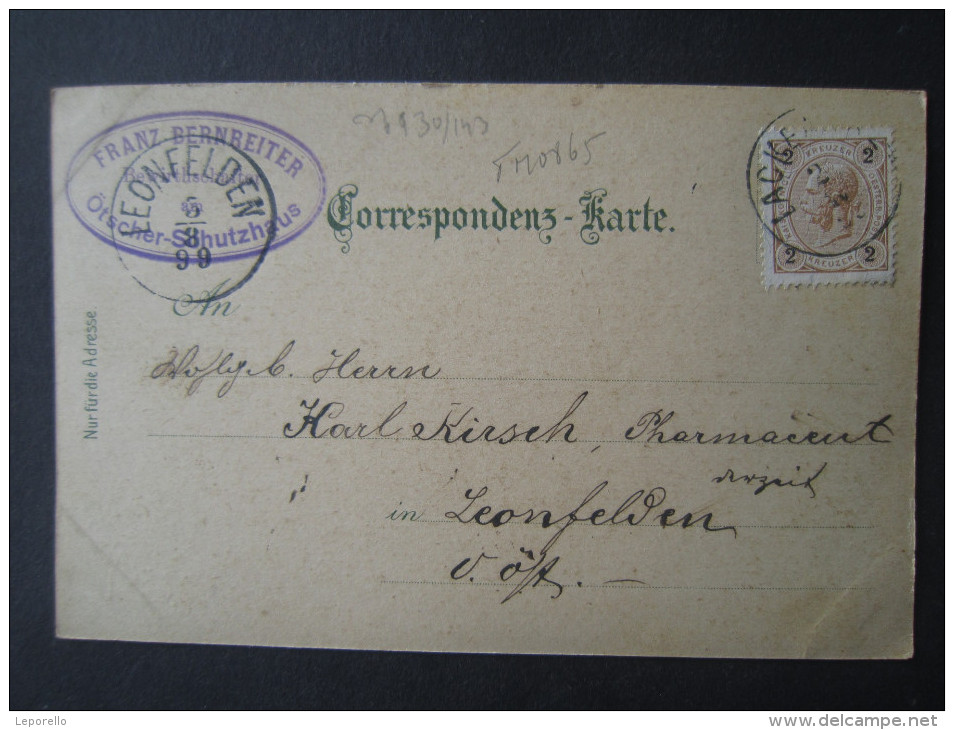 FRANZ BERNREITER
am
Ötscher-Schutzhaus
LEONFELDEN
5
8
99
Correspondenz-Karte.
KREUZER
2 2
2 2
KREUZER
An
Nur für die Adresse
Wohlgeb. Herrn
Karl Kirsch, Pharmaceut
derzeit
in Leonfelden
O. öst. —
Leporello
www.delcampe.net